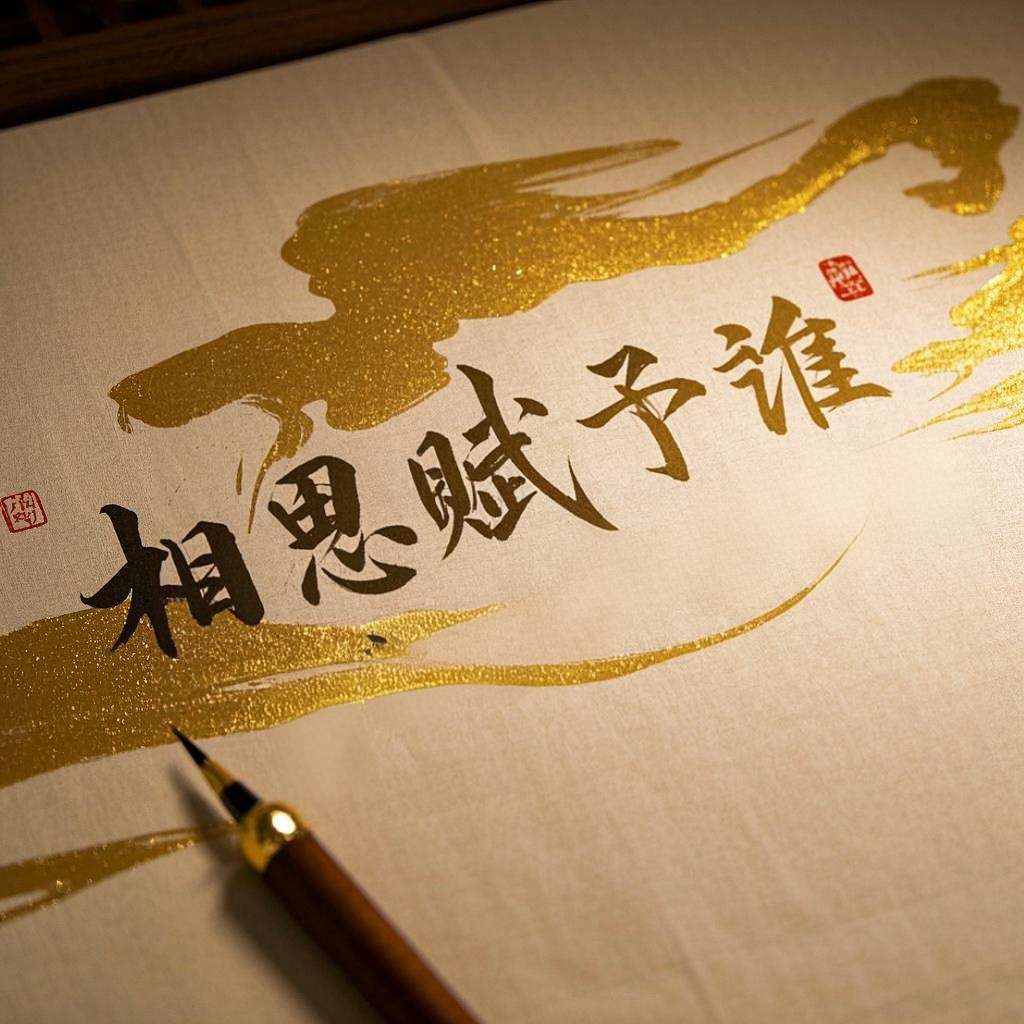 相思赋予誰